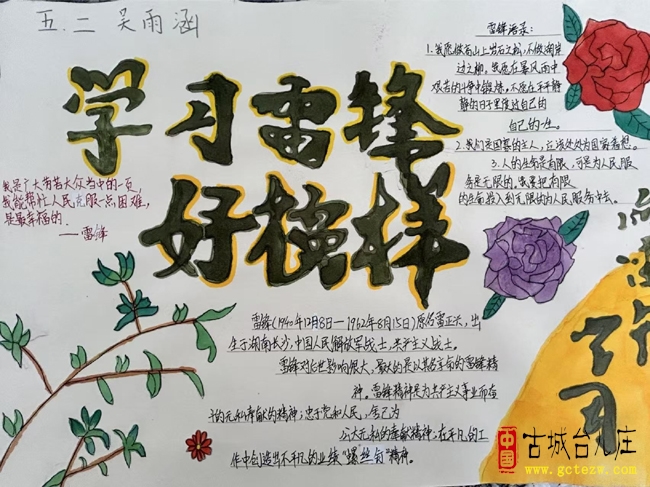 五.二 吴雨涵
学习雷锋
好榜样
我是广大劳苦大众当中的一员,
我能帮忙人民克服一点困难,
是最幸福的.
——雷锋
雷锋语录:
1.我愿做高山上岩石之松,不做湖岸
过之柳。我愿在暴风雨中
艰苦的斗争中锻炼,不愿在平平静
静的日子里度过自己的
自己的一生。
2.我们是国家的主人,应该处处为国家着想。
3.人的生命是有限,可是为人民服
务是无限的,我要把有限
的生命投入到无限的为人民服务中去。
雷锋(1940年12月8日—1962年8月15日)原名雷正兴,出
生于湖南长沙,中国人民解放军战士,共产主义战士。
雷锋对后世影响很大,最大的是以其名字命名的雷锋精
神。雷锋精神是为共产主义事业而奋
的无私奉献的精神;忠于党和人民,舍己为
公大无私的奉献精神;在平凡的工
作中创造出不平凡的业绩"螺丝钉"精神。
了月
中国
古城台儿庄
www.gctezw.com